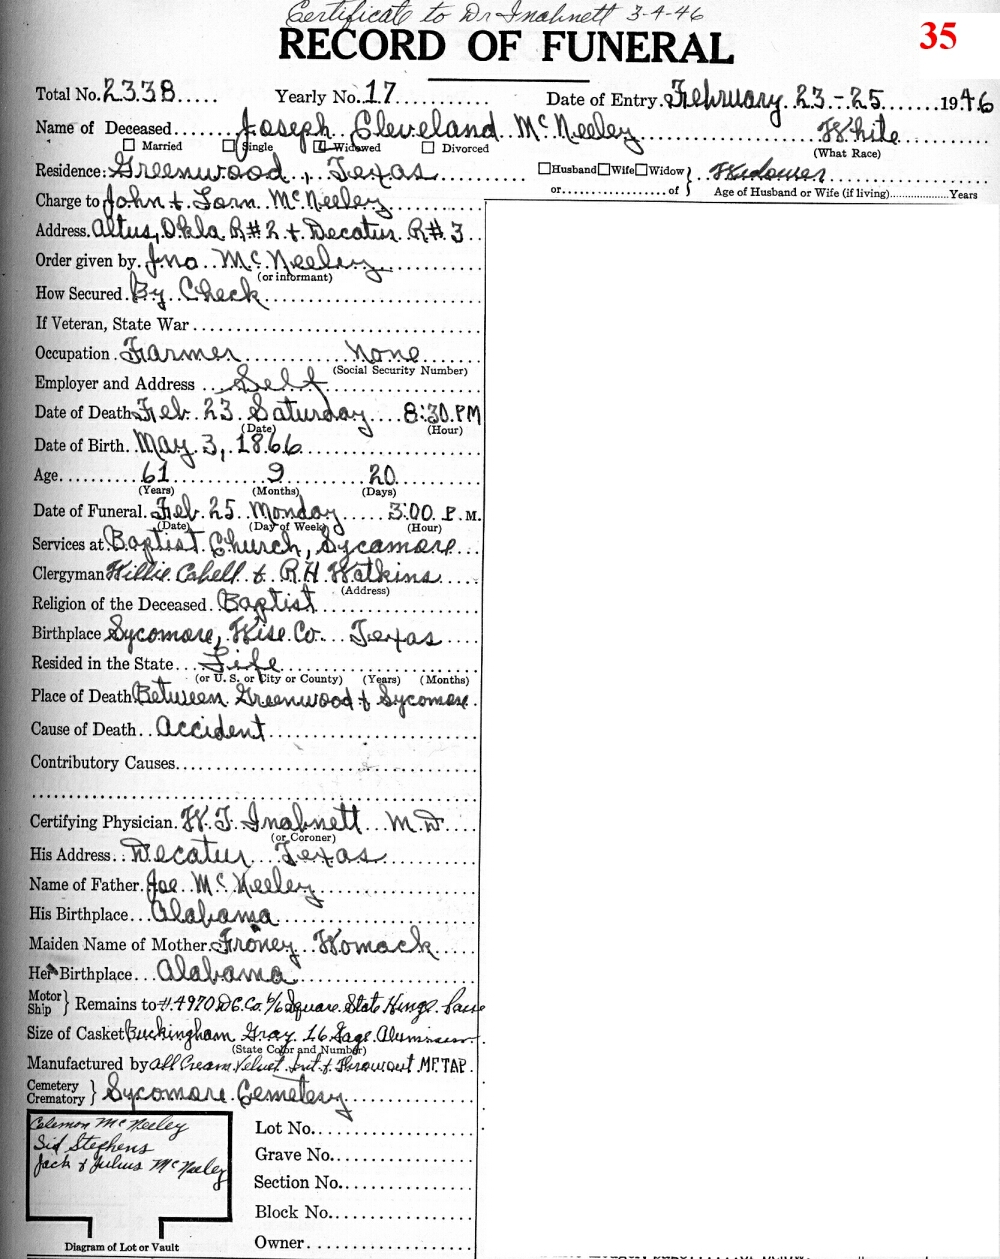 Certificate to Dr Inabnett 3-4-46
35
RECORD OF FUNERAL
Total No. 2338 Yearly No. 17 Date of Entry. February 23-25 1946
Name of Deceased Joseph Cleveland McNeeley White
Married Single Widowed Divorced (What Race)
Residence: Greenwood, Texas Husband Wife Widow or of Widower Age of Husband or Wife (if living) Years
Charge to John & Lorn McNeeley
Address. Altus, Okla R#2 & Decatur R#3
Order given by. Jno. McNeeley
(or informant)
How Secured. By Check
If Veteran, State War
Occupation. Farmer None
(Social Security Number)
Employer and Address Self
Date of Death Feb. 23 Saturday 8:30 PM
(Date) (Hour)
Date of Birth. May 3, 1866
Age 61 9 20
(Years) (Months) (Days)
Date of Funeral. Feb. 25 Monday 3:00 P.M.
(Date) (Day of Week) (Hour)
Services at Baptist Church, Sycamore
Clergyman Willie Cahell & R.H. Watkins
(Address)
Religion of the Deceased. Baptist
Birthplace Sycomore, Wise Co. Texas
Resided in the State Life
(or U. S. or City or County) (Years) (Months)
Place of Death Between Greenwood & Sycomore
Cause of Death Accident
Contributory Causes
Certifying Physician. W.T. Inabnett M.D.
(or Coroner)
His Address Decatur Texas
Name of Father. Joe McNeeley
His Birthplace Alabama
Maiden Name of Mother. Froney Womack
Her Birthplace Alabama
Motor Ship } Remains to #4970 D.C.Co. 6/6 Square State Hinge
Size of Casket Buckingham Gray 16 Gage Aluminum
(State Color and Number)
Manufactured by All Cream Velvet Int. & Throwout METAP.
Cemetery Crematory } Sycomore Cemetery
Colemon McNeeley
Sid Stephens
Jack & Julius McNeeley
Lot No.
Grave No.
Section No.
Block No.
Owner
Diagram of Lot or Vault